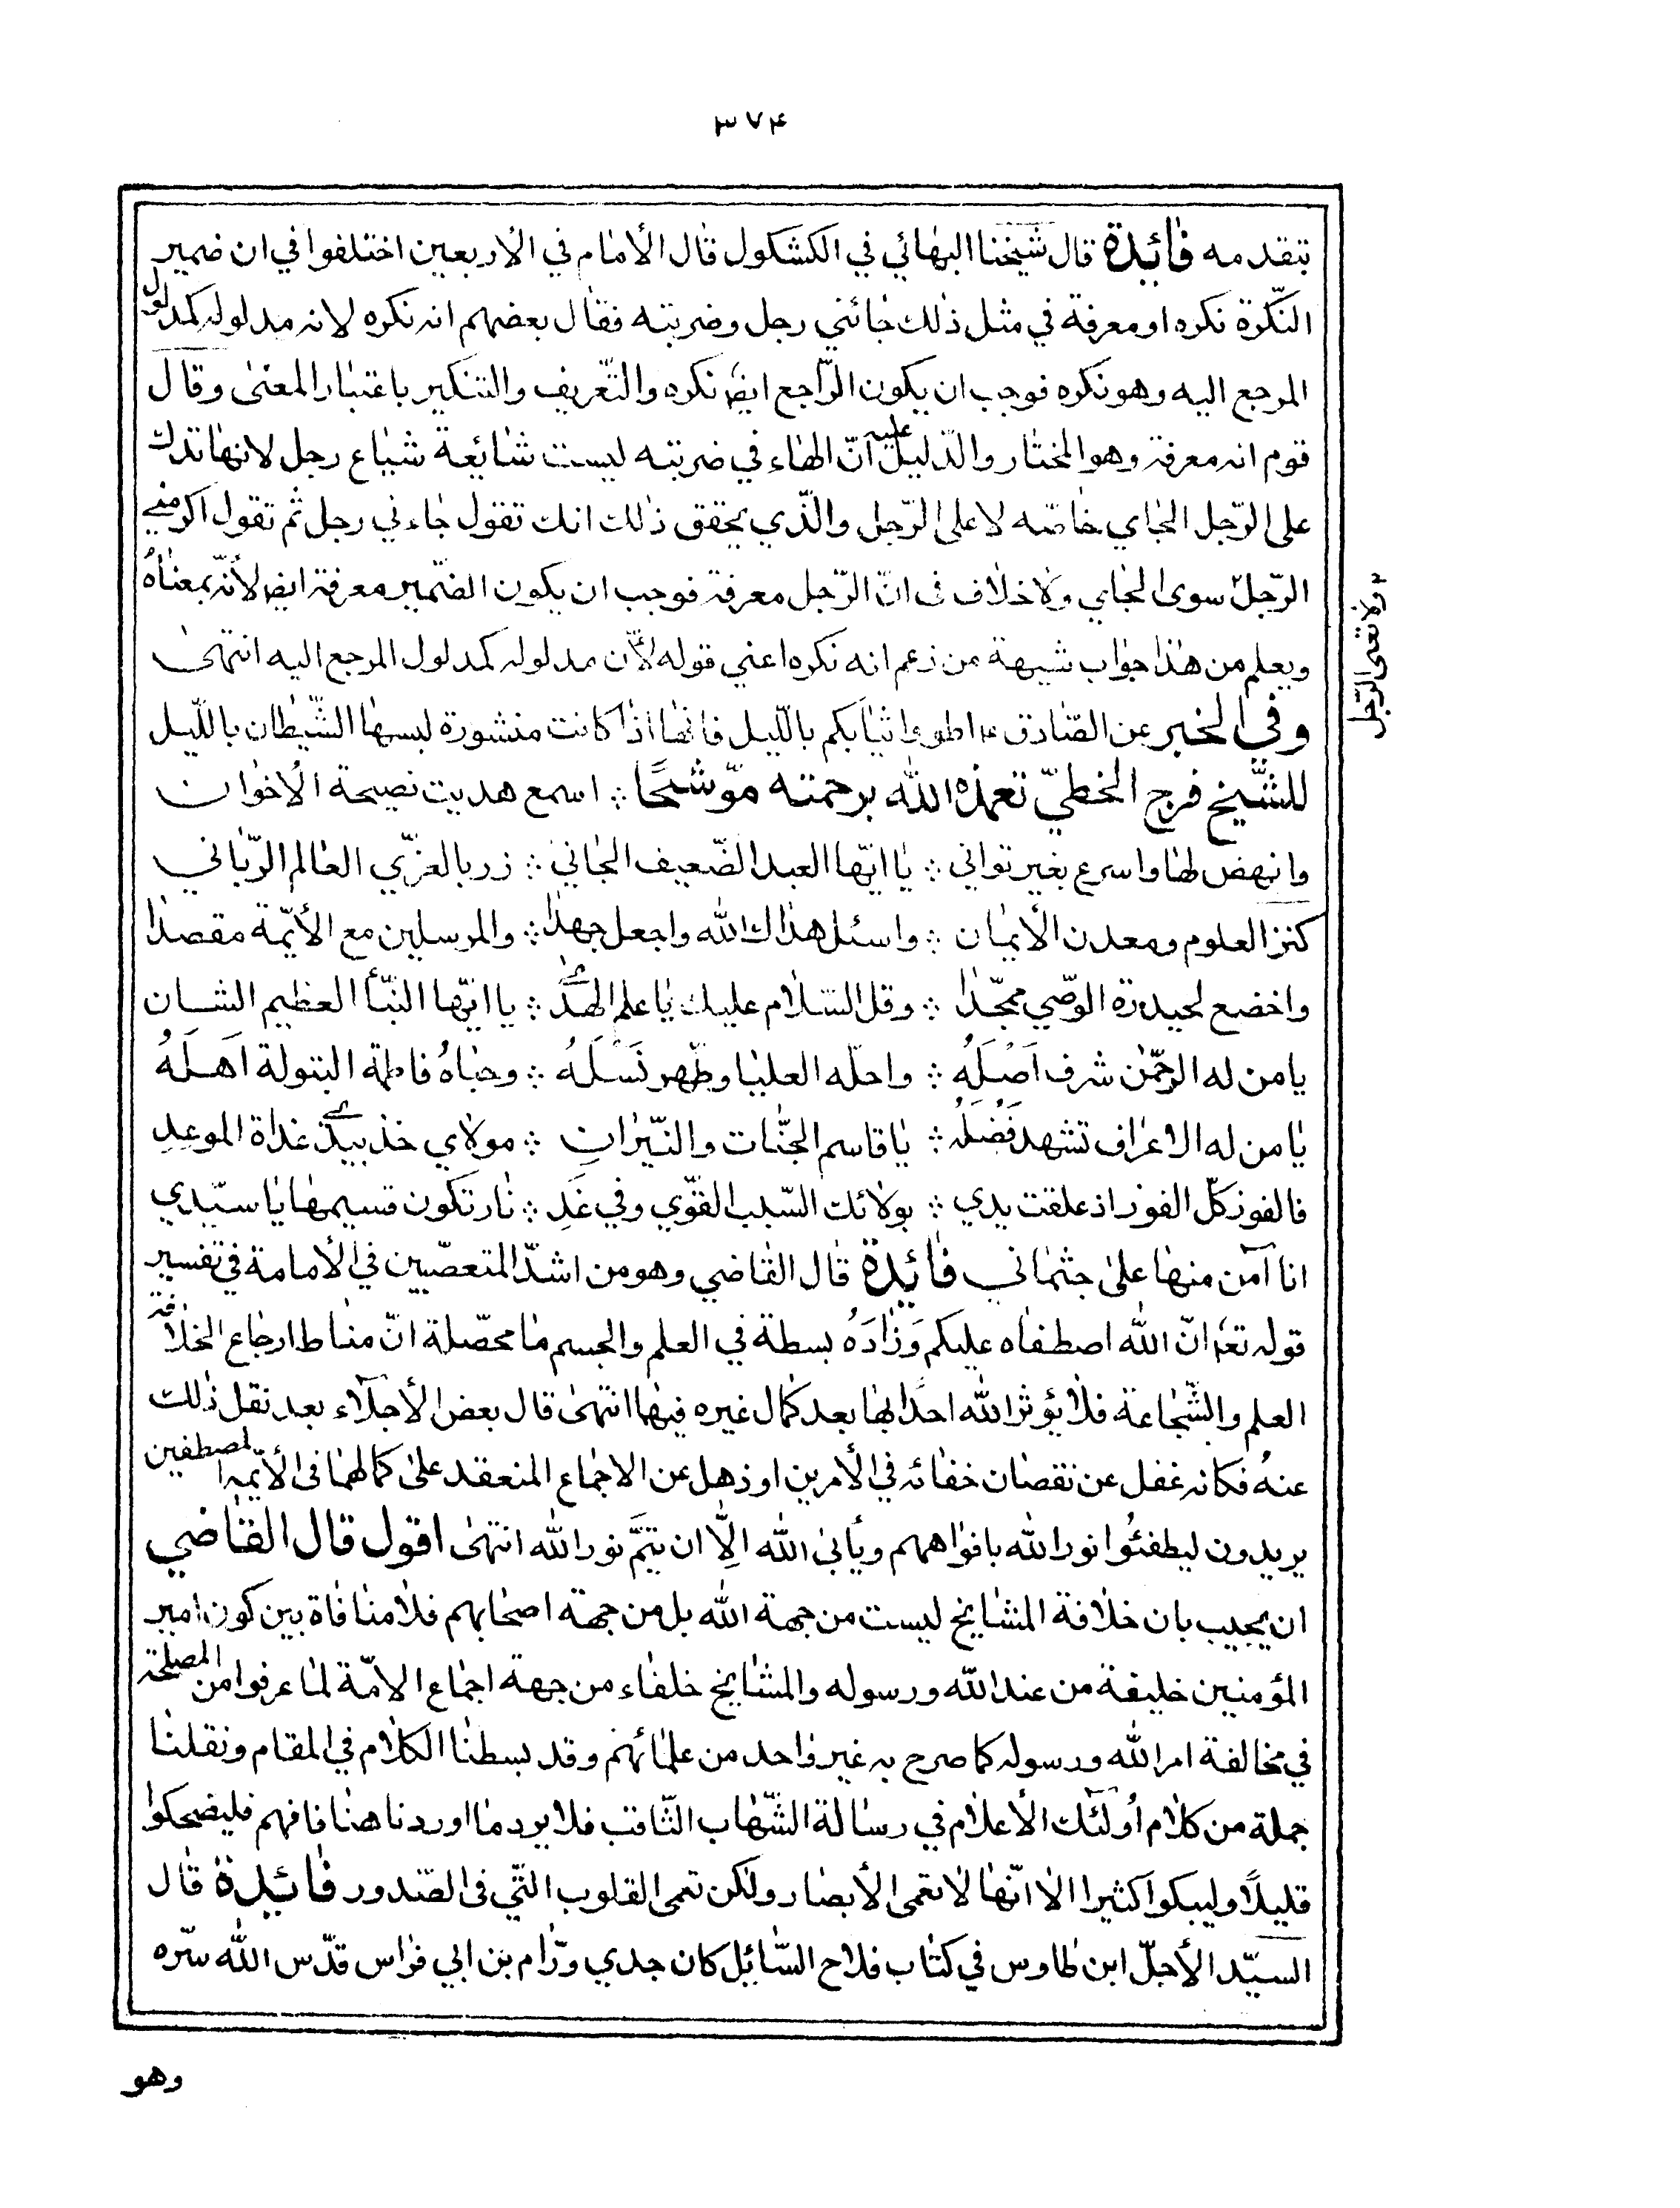 ٣٧۴
بتقدمه فائدة قال شيخنا البهائي في الكشكول قال الأمام في الاربعين اختلفوا في ان ضمير
النكّرة نكره او معرفة في مثل ذلك جائني رجل وضربته فقال بعضهم انه نكره لانه مدلوله كمدلول
المرجع اليه وهو نكره فوجب ان يكون الرّاجع ايضا نكره والتّعريف والتنكير باعتبار المعنى وقال
قوم انه معرفة وهو المختار والدّليل عليه انّ الهاء في ضربته ليست شايعة شياع رجل لانها تدل
على الرّجل الجاي خاصّه لا على الرّجل والذّي يحقق ذلك انك تقول جاءني رجل ثم تقول اكرمني
الرّجل ٢ سوى الجاي ولا خلاف في انّ الرّجل معرفة فوجب ان يكون الضّمير معرفة ايضا لأنّه بمعناهُ
ويعلم من هذا جواب شبهة من زعم انه نكره اعني قوله لأنّ مدلوله كمدلول المرجع اليه انتهى
وفي الخبر عن الصّادق ع اطووا ثيابكم بالّليل فانها اذا كانت منشورة لبسها الشّيطان بالّليل
للشّيخ فرج الخطيّ تغمده الله برحمته موّشحًا ∴ اسمع هديت نصيحة الاخوان
وانهض لها واسرع بغير تواني ∴ يا ايّها العبد الضّعيف الجاني ∴ زر بالغرّي العالم الرّباني
كنز العلوم ومعدن الأيمان ∴ واسئل هداك الله واجعل جهدا ∴ والمرسلين مع الأيمّة مقصدا
واخضع لحيدرة الوصّي ممجّدا ∴ وقل السّلام عليك يا علم الهدىٰ ∴ يا ايّها النبّأ العظيم الشان
يا من له الرحمٰن شرف اَصْلَهُ ∴ واحلّه العليا وطّهر نَسْلَهُ ∴ وحباهُ فاطمة البتولة اَهلَهُ
يا من له الاعراف تشهد فَضْلَهُ ∴ يا قاسم الجنّات والنّيران ∴ مولاي خذ بيدي غداة الموعِدِ
فالفوز كلّ الفوز اذ علقت يدي ∴ بولائك السّبب القوّي وفي غَدِ ∴ نار تكون قسيمها يا سيّدي
انا آمن منها على جثماني فائدة قال القاضي وهو من اشدّ المتعصّبين في الأمامة في تفسير
قوله تعا انّ الله اصطفاه عليكم وَزادَهُ بسطة في العلم والجسم ما محصّلة انّ مناط ارجاع الخلافة
العلم والشّجاعة فلا يؤثر الله احدًا لها بعد كمال غيره فيها انتهى قال بعض الأجلّاء بعد نقل ذلك
عنهُ فكانه غفل عن نقصان خفائه في الأمرين او ذهل عن الاجماع المنعقد على كمالهما في الأيمّة المصطفين
يريدون ليطفئُوا نور الله بافواههم ويأبى الله الِّا ان يتمَّ نور الله انتهى اقول قال القاضي
ان يجيب بان خلافة المشايخ ليست من جهة الله بل من جهة اصحابهم فلا منافاة بين كون امير
المؤمنين خليفة من عند الله ورسوله والمشايخ خلفاء من جهة اجماع الامّة لما عرفوا من المصلحة
في مخالفة امر الله ورسوله كما صرح به غير واحد من علمائهم وقد بسطنا الكلام في المقام ونقلنا
جملة من كلام أولئك الأعلام في رسالة الشّهاب الثّاقب فلا يرد ما اوردنا هنا فافهم فليضحكوا
قليلًا وليبكوا كثيرا الا انّها لا تعمى الأبصار ولكن تعمى القلوب التّي في الصّدور فائدة قال
السيّد الأجلّ ابن طاوس في كتاب فلاح السّائل كان جدي ورّام بن ابي فراس قدّس الله سرّه
٢ ولا تعنى الرّجل
وهو